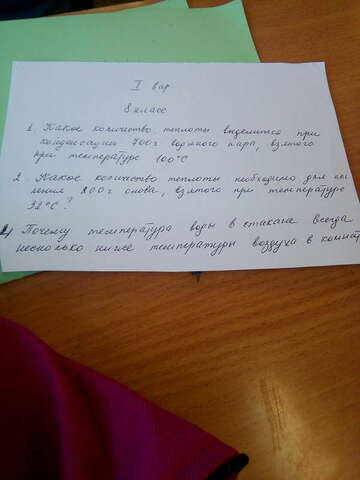 I вар
8 класс
1. Какое количество теплоты выделится при
конденсации 700г водяного пара, взятого
при температуре 100°С
2. Какое количество теплоты необходимо для
ления 200г олова, взятого при температуре
32°С?
Почему температура воды в стакане всегда
несколько ниже температуры воздуха в комнат